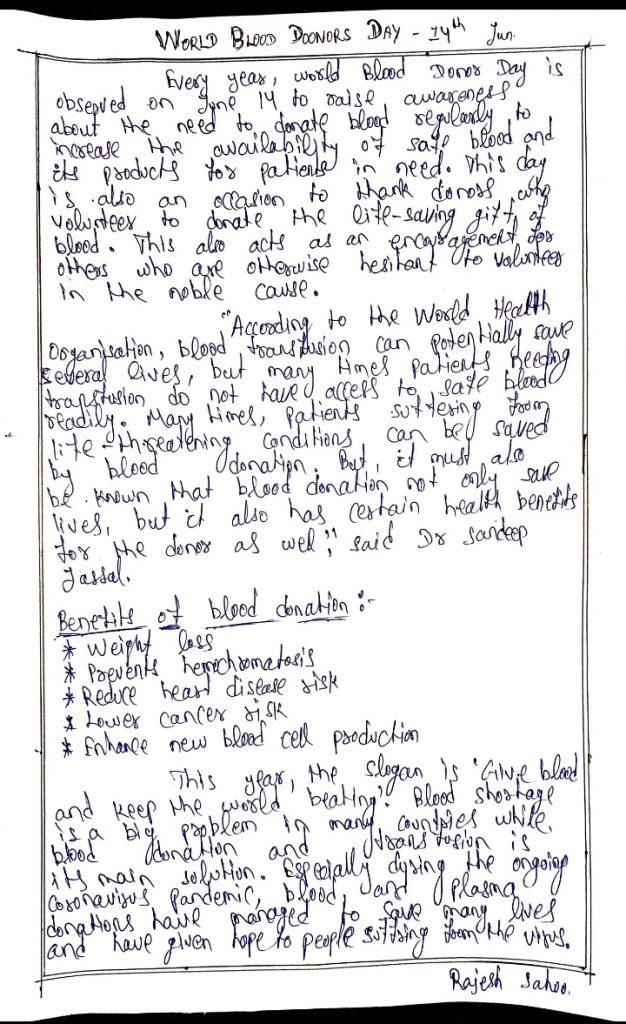 WORLD BLOOD DOONORS DAY - 14th Jun.
Every year, world Blood Donor Day is
observed on June 14 to raise awareness
about the need to donate blood regularly to
increase the availability of safe blood and
its products for patients in need. This day
is also an occasion to thank donors who
volunteer to donate the life-saving gift of
blood. This also acts as an encouragement for
others who are otherwise hesitant to volunteer
in the noble cause.
"According to the World Health
Organisation, blood transfusion can potentially save
several lives, but many times patients needing
transfusion do not have access to safe blood
readily. Many times, patients suffering from
life-threatening conditions can be saved
by blood donation. But, it must also
be known that blood donation not only save
lives, but it also has certain health benefits
for the donor as well," said Dr Sandeep
Jassal.
Benefits of blood donation :-
* Weight loss
* Prevents hemochromatosis
* Reduce heart disease risk
* Lower cancer risk
* Enhance new blood cell production
This year, the slogan is 'Give blood
and keep the world beating'. Blood shortage
is a big problem in many countries while
blood donation and transfusion is
its main solution. Especially during the ongoing
coronavirus pandemic, blood and plasma
donations have managed to save many lives
and have given hope to people suffring from the virus.
Rajesh Sahoo.